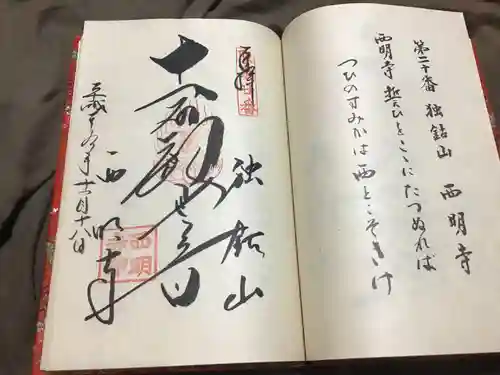 第二十番 独鈷山 西明寺
西明寺 誓ひをここにたつぬれば
つひのすみかは西とこそきけ
独鈷山
十一面観世音
西明寺
平成十九年十二月十八日
西明